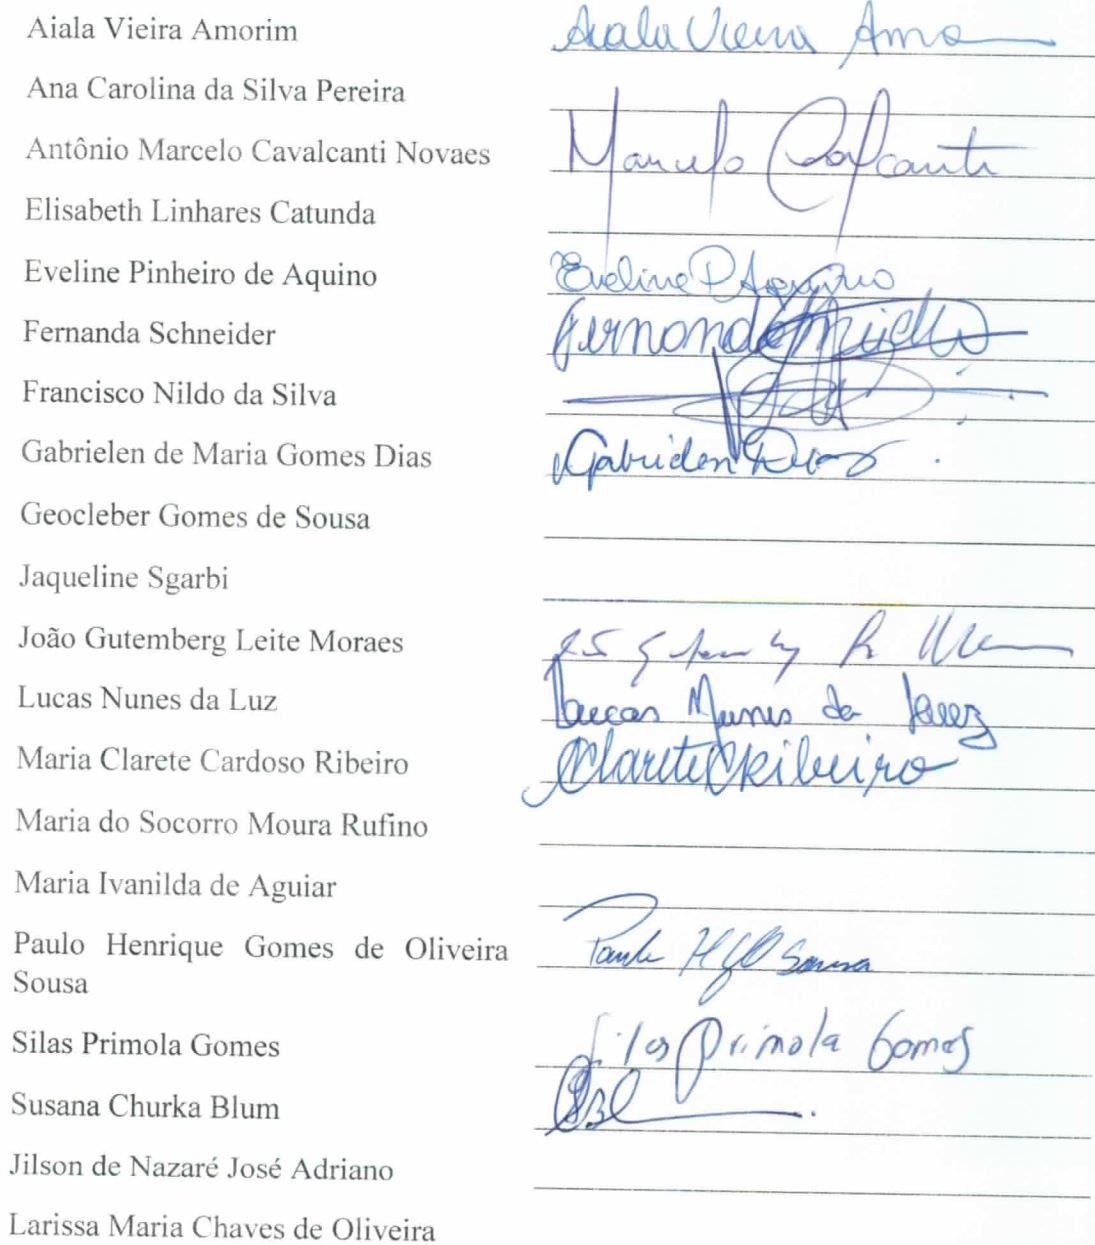 Aiala Vieira Amorim Aiala Vieira Amo
Ana Carolina da Silva Pereira
Antônio Marcelo Cavalcanti Novaes Marcelo Cavcanti
Elisabeth Linhares Catunda
Eveline Pinheiro de Aquino Eveline P Aquino
Fernanda Schneider Fernanda
Francisco Nildo da Silva
Gabrielen de Maria Gomes Dias Gabrielen Dias
Geocleber Gomes de Sousa
Jaqueline Sgarbi
João Gutemberg Leite Moraes
Lucas Nunes da Luz Lucas Nunes da Luz
Maria Clarete Cardoso Ribeiro Clarete Ribeiro
Maria do Socorro Moura Rufino
Maria Ivanilda de Aguiar
Paulo Henrique Gomes de Oliveira Paulo HGO Sousa
Sousa
Silas Primola Gomes Silas Primola Gomes
Susana Churka Blum
Jilson de Nazaré José Adriano
Larissa Maria Chaves de Oliveira